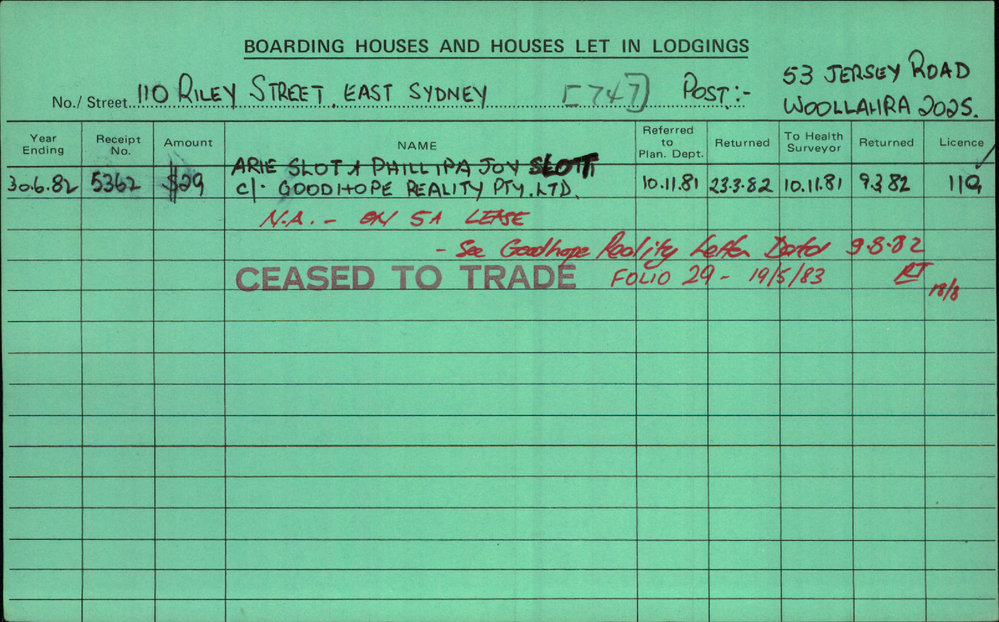 BOARDING HOUSES AND HOUSES LET IN LODGINGS
No./ Street 110 RILEY STREET, EAST SYDNEY [747] POST:- 53 JERSEY ROAD
WOOLLAHRA 2025.
Year Ending Receipt No. Amount NAME Referred to Plan. Dept. Returned To Health Surveyor Returned Licence
30.6.82 5362 $29 ARIE SLOT & PHILLIPA JOY SLOTT
c/- GOODHOPE REALITY PTY. LTD. 10.11.81 23.3.82 10.11.81 9.3.82 119
N.A. - ON 5A LEASE
- See Goodhope Reality Letter Dated 9-8-82
CEASED TO TRADE FOLIO 29 - 19/5/83 RT
18/8